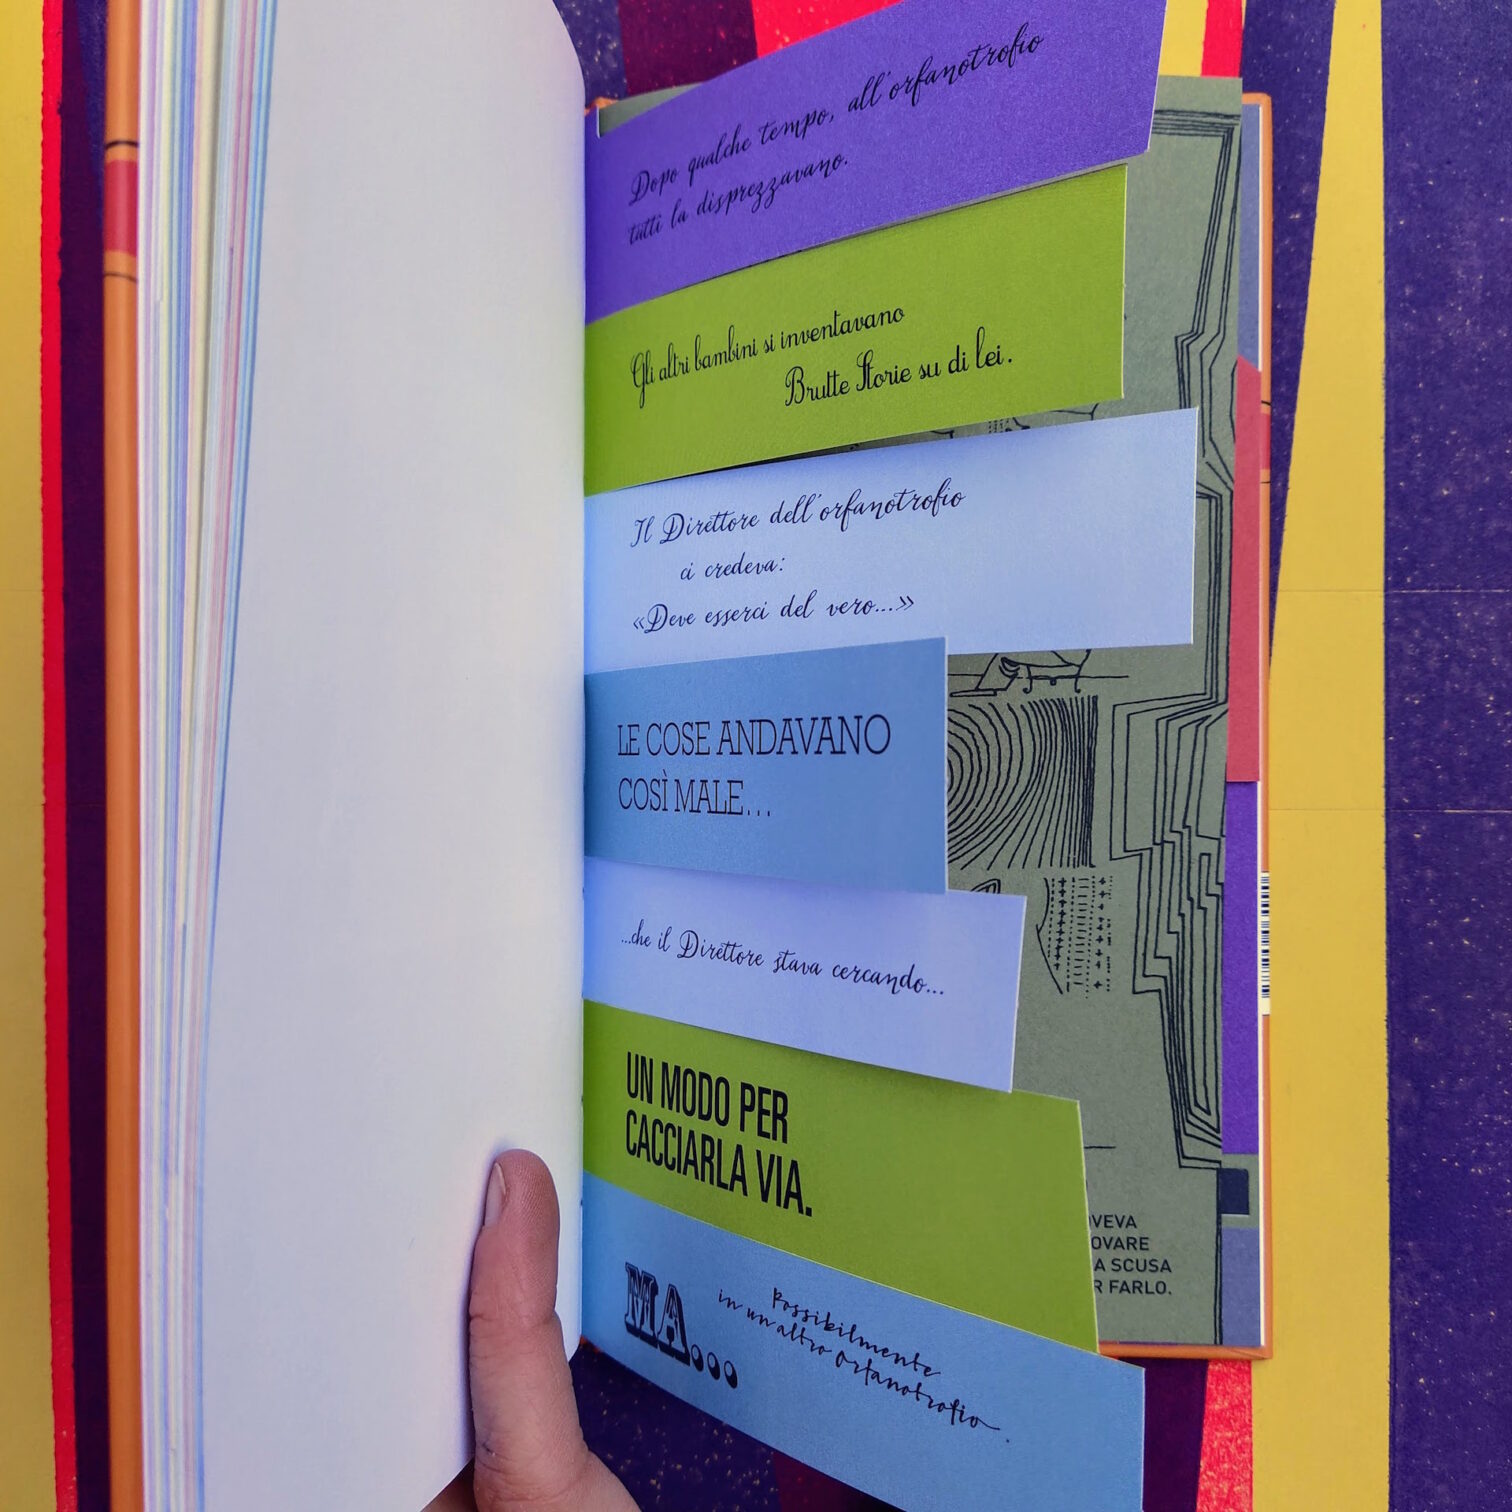 Dopo qualche tempo, all'orfanotrofio
tutti la disprezzavano.
Gli altri bambini si inventavano
Brutte Storie su di lei.
Il Direttore dell'orfanotrofio
ci credeva:
«Deve esserci del vero...»
LE COSE ANDAVANO
COSÌ MALE...
...che il Direttore stava cercando...
UN MODO PER
CACCIARLA VIA.
MA...
Possibilmente
in un altro Orfanotrofio.
OVEVA
OVARE
A SCUSA
R FARLO.